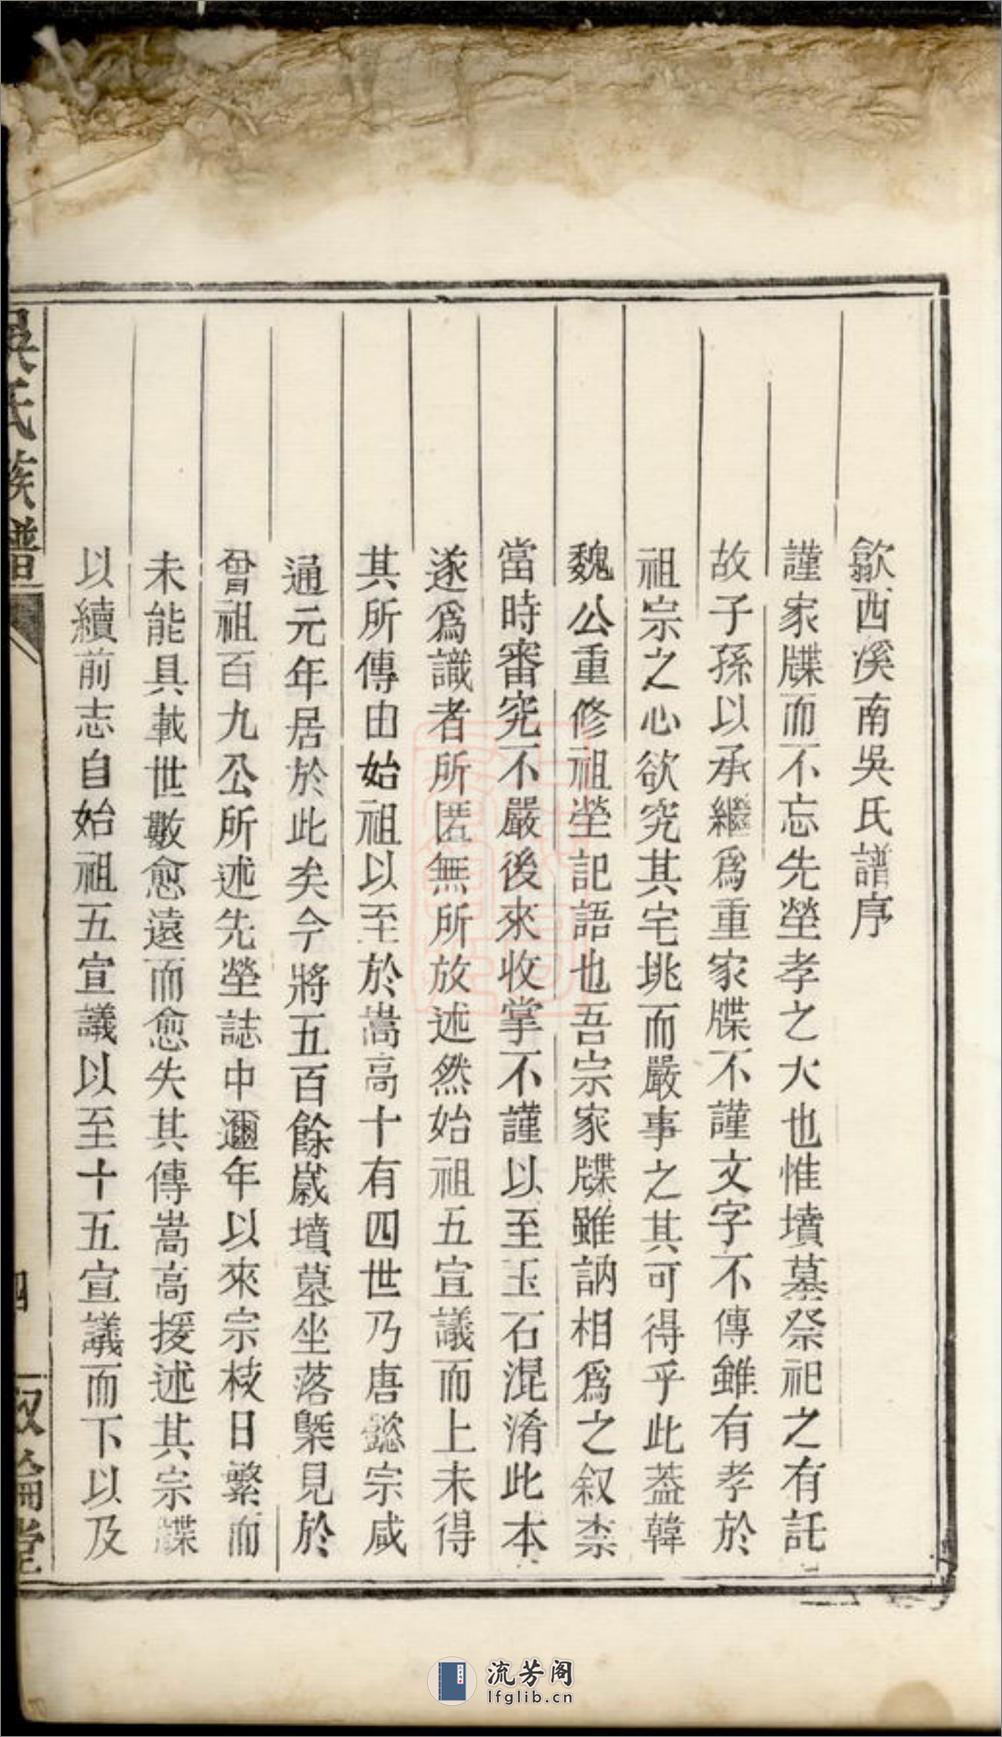 歙西溪南吳氏譜序
謹家牒而不忘先塋孝之大也惟墳墓祭祀之有託
故子孫以承繼爲重家牒不謹文字不傳雖有孝於
祖宗之心欲究其宅兆而嚴事之其可得乎此蓋韓
魏公重修祖塋記語也吾宗家牒雖訥相爲之叙柰
當時審究不嚴後來收掌不謹以至玉石混淆此本
遂爲識者所匿無所放述然始祖五宣議而上未得
其所傳由始祖以至於嵩高十有四世乃唐懿宗咸
通元年居於此矣今將五百餘歲墳墓坐落槩見於
曾祖百九公所述先塋誌中邇年以來宗枝日繁而
未能具載世數愈遠而愈失其傳嵩高援述其宗牒
以續前志自始祖五宣議以至十五宣議而下以及
吳氏族譜
四
叙倫堂
流芳阁
lfglib.cn